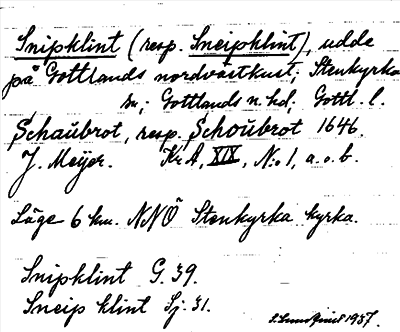 Snipklint (resp. Sneipklint), udde
på Gottlands nordvästkust; Stenkyrka
sn; Gottlands n. hd; Gottl. l.
Schaŭbrot, resp. Schoŭbrot 1646.
J. Meijer. Kr A, XIX, N:o 1, a. o. b.
Läge 6 km. NNÖ Stenkyrka kyrka.
Snipklint G. 39.
Sneip klint Sj. 31.
1937.